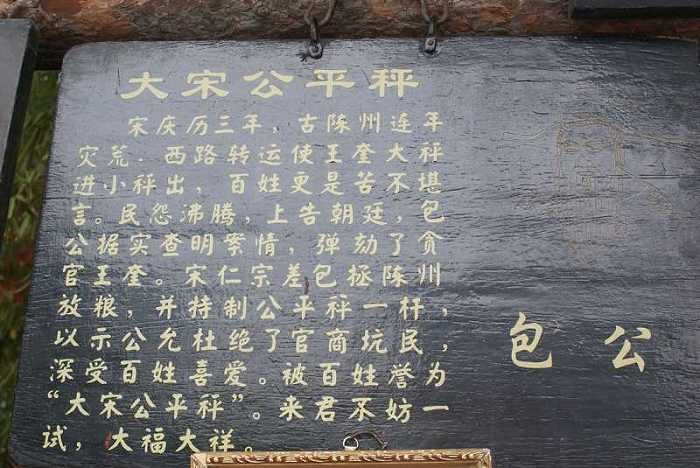 大宋公平秤
宋庆历三年，古陈州连年
灾荒．西路转运使王奎大秤
进小秤出，百姓更是苦不堪
言。民怨沸腾，上告朝廷，包
公据实查明案情，弹劾了贪
官王奎。宋仁宗差包拯陈州
放粮，并特制公平秤一杆，
以示公允杜绝了官商坑民，
深受百姓喜爱。被百姓誉为
“大宋公平秤”。来君不妨一
试，大福大祥。
包公